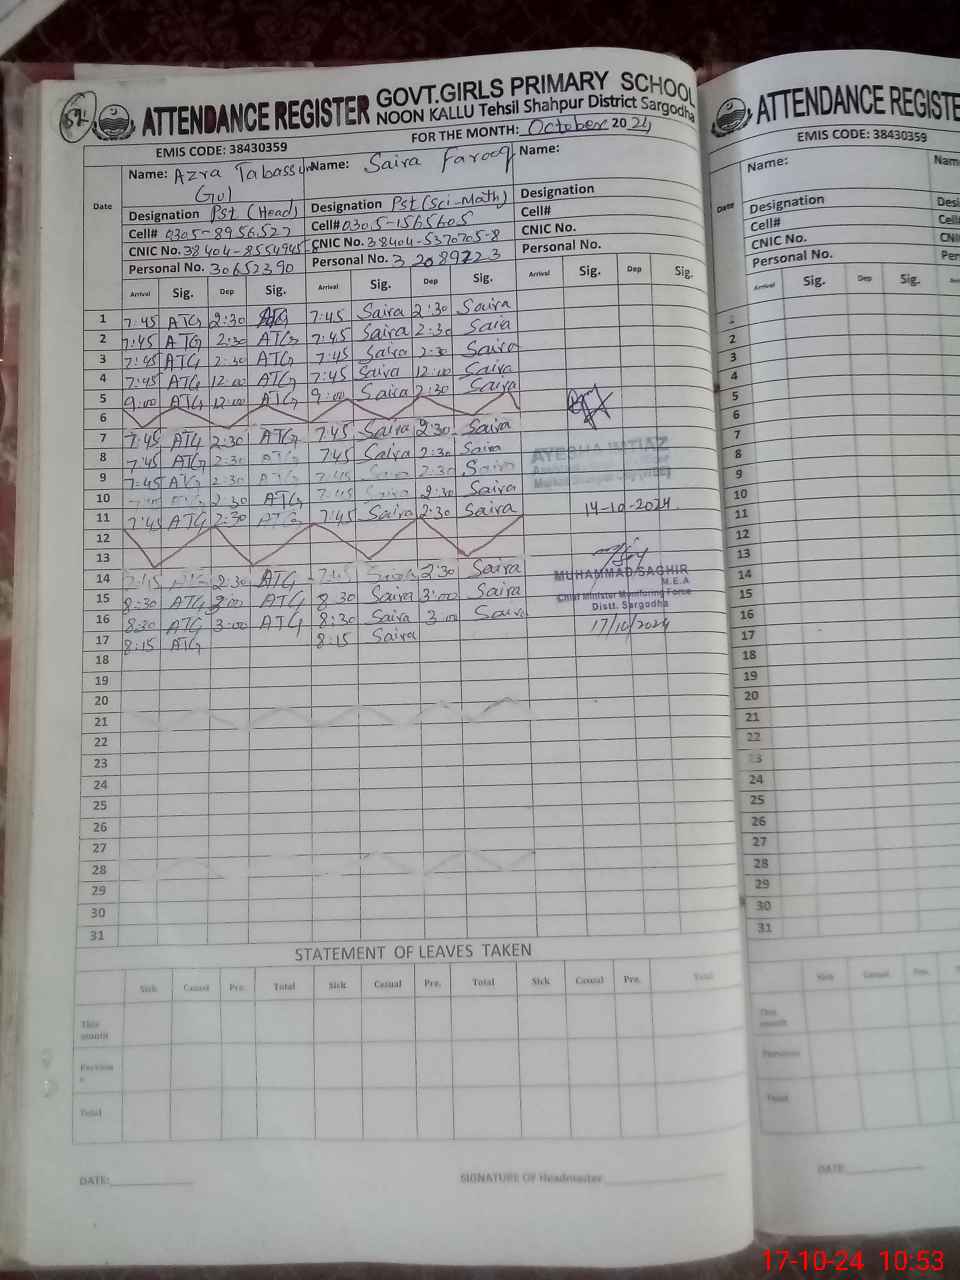 52 ATTENDANCE REGISTER GOVT.GIRLS PRIMARY SCHOOL
NOON KALLU Tehsil Shahpur District Sargodha
EMIS CODE: 38430359 FOR THE MONTH: October 2024
Date Name: Azra Tabassum Gul Name: Saira Farooq Name:
Designation Pst (Head) Designation Pst (Sci-Math) Designation
Cell# 0305-8956527 Cell# 0305-1565605 Cell#
CNIC No. 38404-8554945 CNIC No. 38404-5370705-8 CNIC No.
Personal No. 30652390 Personal No. 3 Personal No.
Arrival Sig. Dep Sig. Arrival Sig. Dep Sig. Arrival Sig. Dep Sig.
1 7:45 ATG 2:30 ATG 7:45 Saira 2:30 Saira
2 7:45 ATG 2:30 ATG 7:45 Saira 2:30 Saira
3 7:45 ATG 2:30 ATG 7:45 Saira 2:30 Saira
4 7:45 ATG 12:00 ATG 7:45 Saira 12:00 Saira
5 9:00 ATG 12:00 ATG 9:00 Saira 2:30 Saira
6
7 7:45 ATG 2:30 ATG 7:45 Saira 2:30 Saira
8 7:45 ATG 2:30 ATG 7:45 Saira 2:30 Saira
9 7:45 ATG 2:30 ATG 7:45 Saira 2:30 Saira
10 7:45 ATG 2:30 ATG 7:45 Saira 2:30 Saira
11 7:45 ATG 2:30 ATG 7:45 Saira 2:30 Saira
12
13
14 7:45 ATG 2:30 ATG 7:45 Saira 2:30 Saira
15 8:30 ATG 3:00 ATG 8:30 Saira 3:00 Saira
16 8:30 ATG 3:00 ATG 8:30 Saira 3:00 Saira
17 8:15 ATG 8:15 Saira
18
19
20
21
22
23
24
25
26
27
28
29
30
31
AYESHA IMTIAZ
14-10-2024
MUHAMMAD SAGHIR
M.E.A
Chief Minister Monitoring Force
Distt. Sargodha
17/10/2024
STATEMENT OF LEAVES TAKEN
Sick Casual Pre. Total Sick Casual Pre. Total Sick Casual Pre. Total
This month
Previous
Total
DATE: SIGNATURE OF Headmaster
ATTENDANCE REGISTE
EMIS CODE: 38430359
Date Name: Nam
Designation Desi
Cell# Cell
CNIC No. CNI
Personal No. Per
Arrival Sig. Dep Sig.
1
2
3
4
5
6
7
8
9
10
11
12
13
14
15
16
17
18
19
20
21
22
23
24
25
26
27
28
29
30
31
Sick Casual Pre. Total
This month
Previous
Total
DATE:
17-10-24 10:53